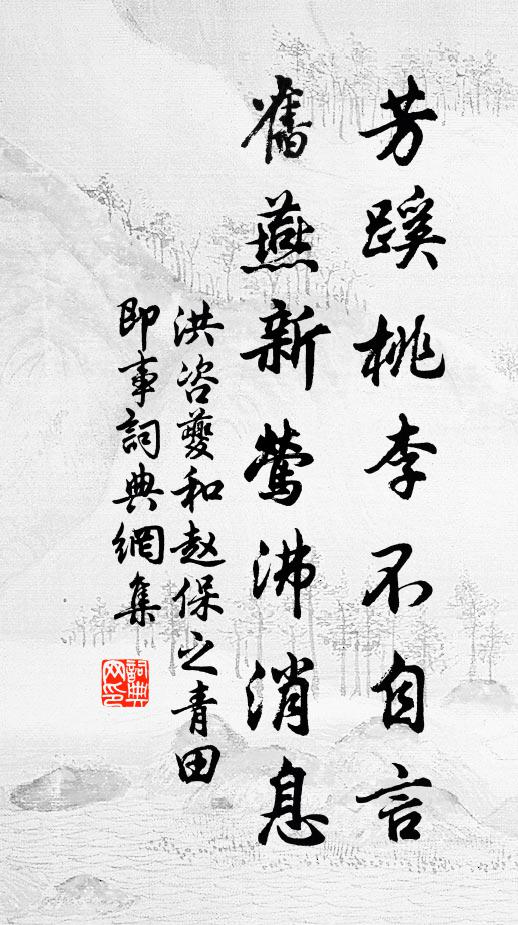 芳蹊桃李不自言
舊燕新鶯沸消息
洪咨夔和赵保之青田
即事詞典網集
詞典网印